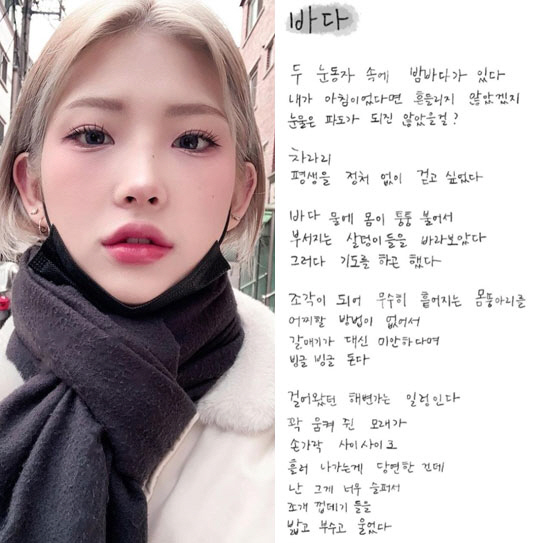 바다
두 눈동자 속에 밤바다가 있다
내가 아침이었다면 흔들리지 않았겠지
눈물은 파도가 되진 않았을걸?
차라리
평생을 정처 없이 걷고 싶었다
바다 물에 몸이 퉁퉁 불어서
부서지는 살덩이들을 바라보았다
그러다 기도를 하곤 했다
조각이 되어 무수히 흩어지는 몸뚱아리를
어찌할 방법이 없어서
갈매기가 대신 미안하다며
빙글 빙글 돈다
걸어왔던 해변가는 일렁인다
꽉 움켜 쥔 모래가
손가락 사이사이로
흘러 나가는게 당연한 건데
난 그게 너무 슬퍼서
조개 껍데기 들을
밟고 부수고 울었다